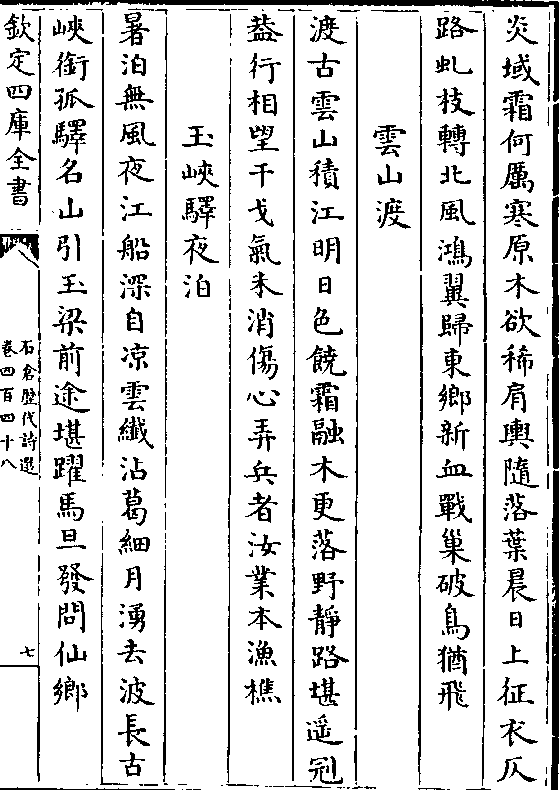 炎域霜何厲寒原木欲稀肩輿隨落葉晨日上征衣仄
路虬枝轉北風鴻翼歸東鄉新血戰巢破鳥猶飛
雲山渡
渡古雲山積江明日色饒霜融木更落野靜路堪遥冠
葢行相望干戈氣未消傷心弄兵者汝業本漁樵
玉峽驛夜泊
暑泊無風夜江船深自凉雲纖沾葛細月湧去波長古
峽銜孤驛名山引玉梁前途堪躍馬旦發問仙鄉
欽定四庫全書
石倉歷代詩選
卷四百四十八
七